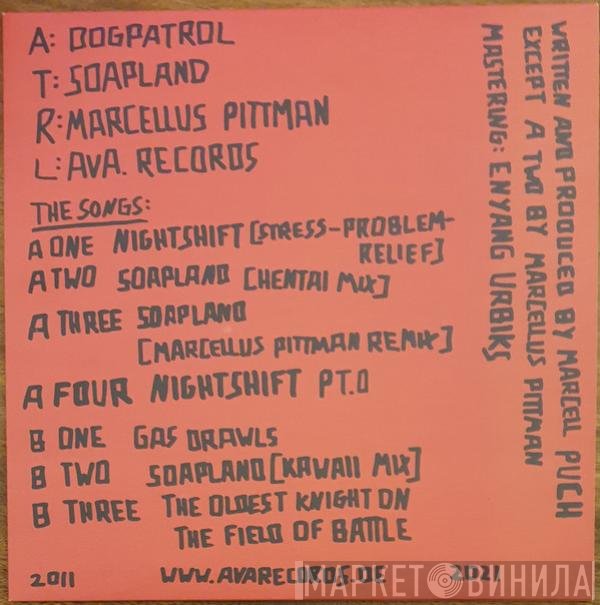 A: DOGPATROL
T: SOAPLAND
R: MARCELLUS PITTMAN
L: AVA. RECORDS
THE SONGS:
A ONE NIGHTSHIFT [STRESS-PROBLEM-
RELIEF]
A TWO SOAPLAND [HENTAI MIX]
A THREE SOAPLAND
[MARCELLUS PITTMAN REMIX]
A FOUR NIGHTSHIFT PT.0
B ONE GAS DRAWLS
B TWO SOAPLAND [KAWAII MIX]
B THREE THE OLDEST KNIGHT ON
THE FIELD OF BATTLE
2011 WWW.AVARECORDS.DE 2021
WRITTEN AND PRODUCED BY MARCELL PUCH
EXCEPT A TWO BY MARCELLUS PITTMAN
MASTERING: ENYANG URBIKS
МАРКЕТ ВИНИЛА